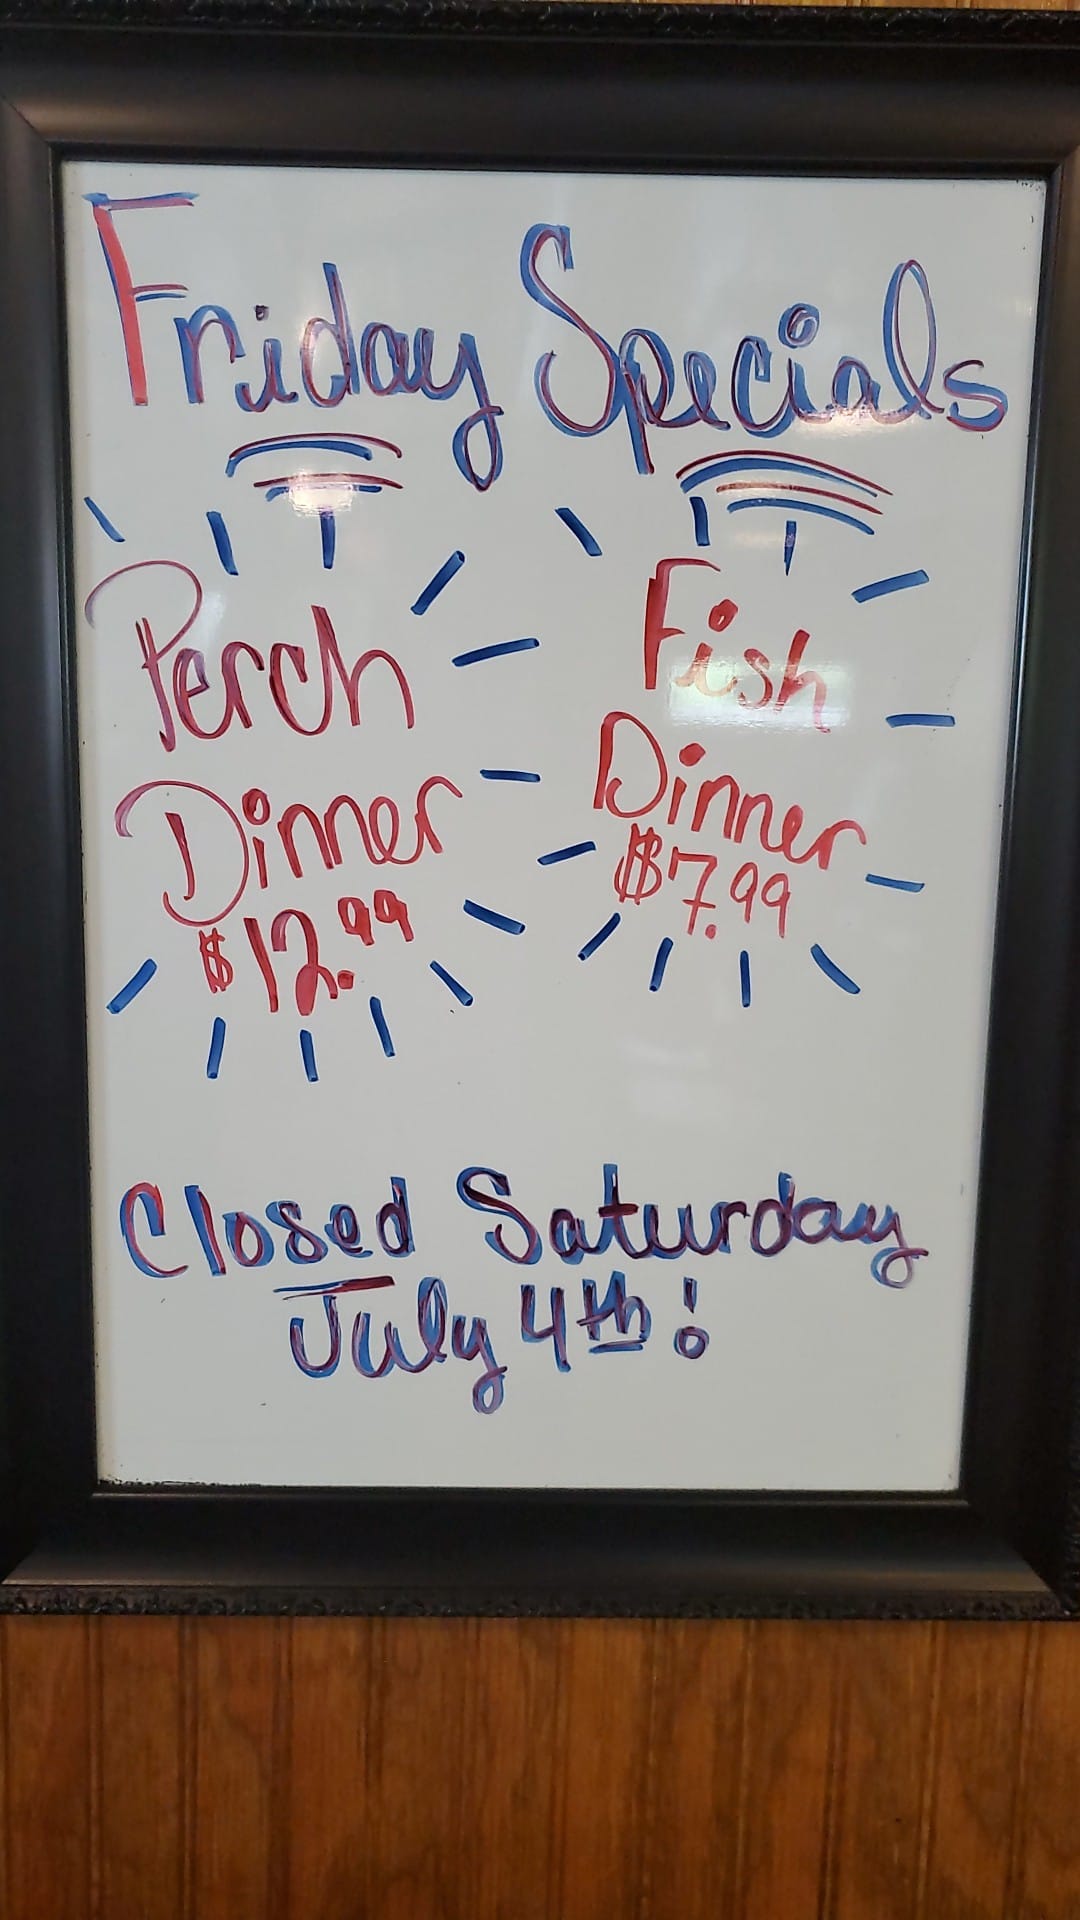 Friday Specials
Perch
Dinner
$12.99
Fish
Dinner
$7.99
Closed Saturday
July 4th!